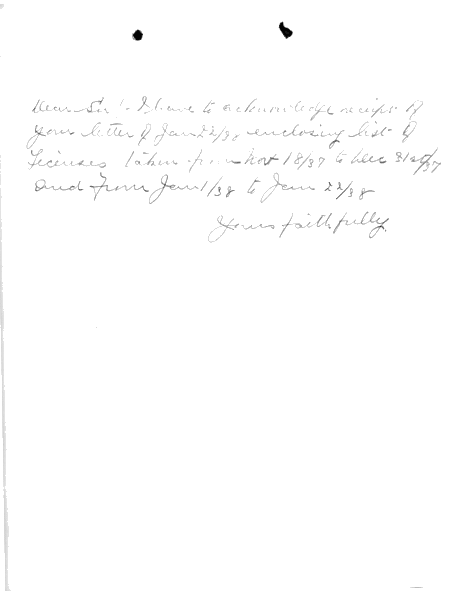 Dear Sir:- I have to acknowledge receipt of
your letter of Jan 22/38 enclosing list of
Licenses taken from Nov 18/37 to Dec 31st/37
and from Jan 1/38 to Jan 22/38
Yours faithfully.